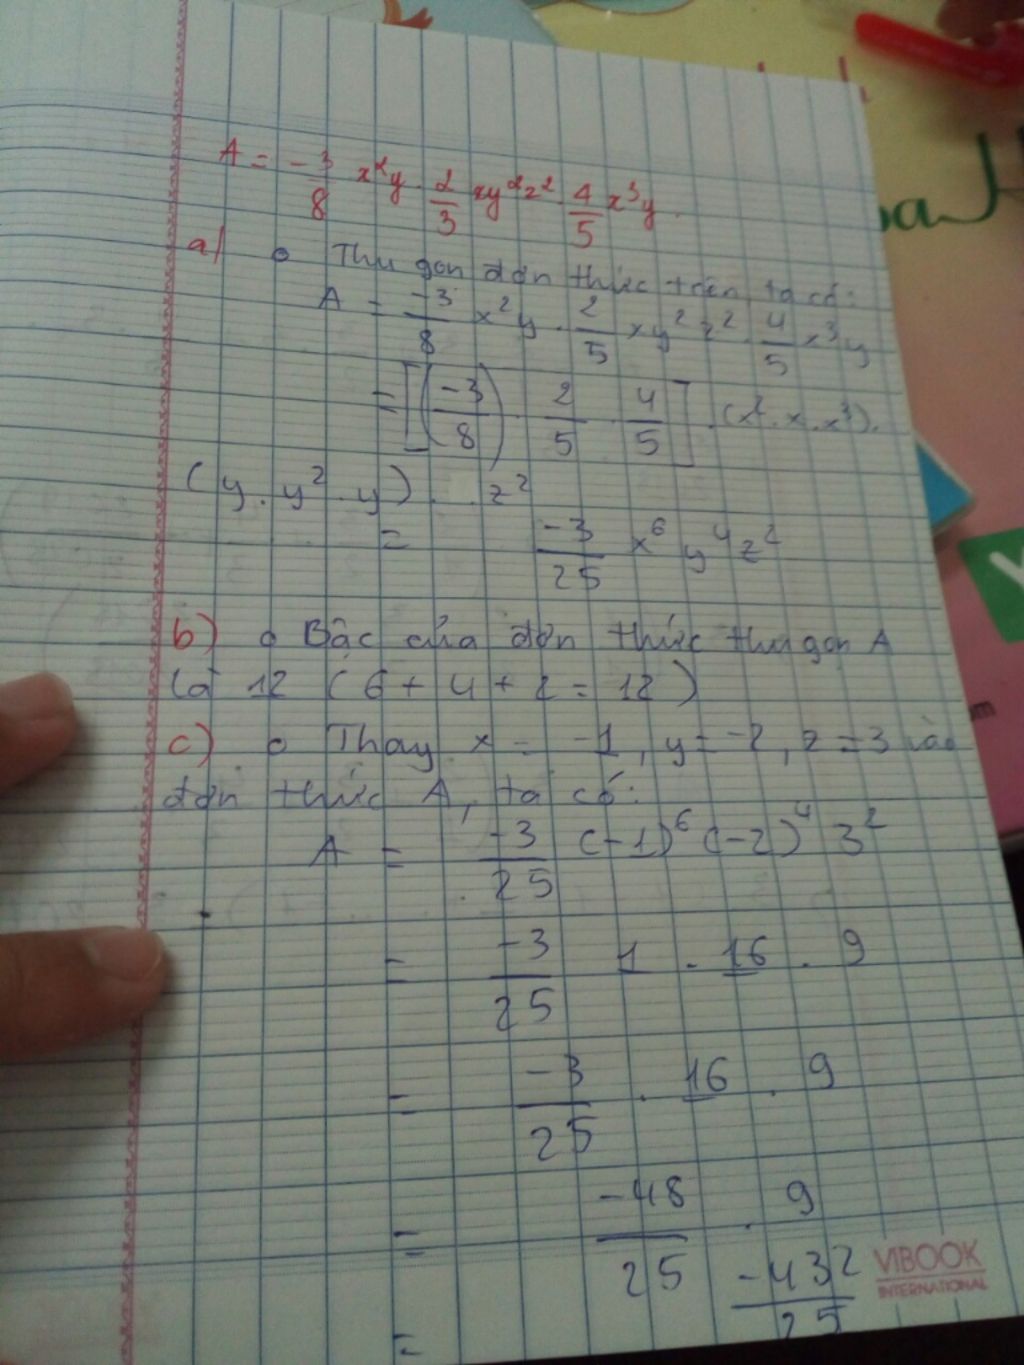 A = -3/8 x²y . 2/3 xy²z² . 4/5 x³y .
a) o Thu gọn đơn thức trên, ta có:
A = -3/8 x²y . 2/5 xy² z² . 4/5 x³y
= [(-3/8) . 2/5 . 4/5] . (x² . x . x³).
(y . y² . y) . z²
= -3/25 x⁶ y⁴ z²
b) o Bậc của đơn thức thu gọn A
là 12 (6 + 4 + 2 = 12)
c) o Thay x = -1, y = -2, z = 3 vào
đơn thức A, ta có:
A = -3/25 (-1)⁶ (-2)⁴ 3²
= -3/25 1 . 16 . 9
= -3/25 . 16 . 9
= -48/25 . 9
= -432/25
VIBOOK
INTERNATIONAL